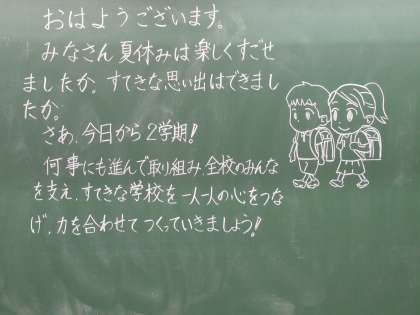 おはようございます。
みなさん夏休みは楽しくすごせ
ましたか。すてきな思い出はできまし
たか。
さあ、今日から2学期!
何事にも進んで取り組み、全校のみんな
を支え、すてきな学校を一人一人の心をつな
げ、力を合わせてつくっていきましょう!!